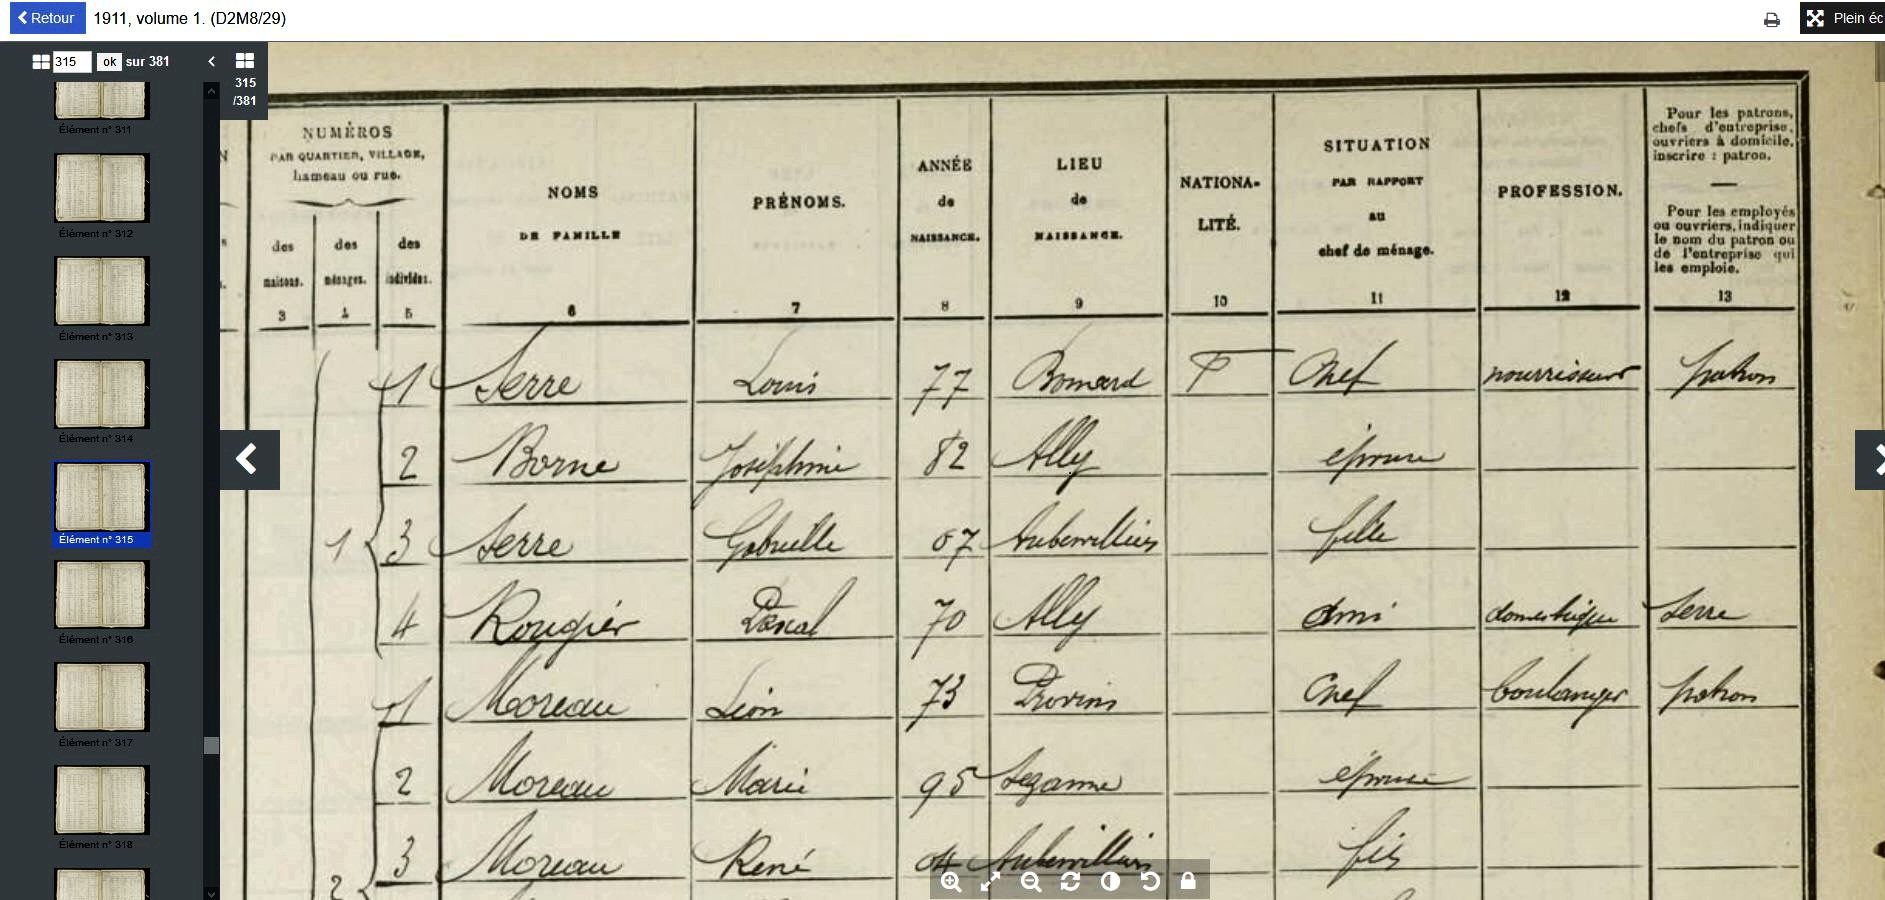 Retour 1911, volume 1. (D2M8/29) Plein éc
315 ok sur 381
315
/381
Élément n° 311
Élément n° 312
Élément n° 313
Élément n° 314
Élément n° 315
Élément n° 316
Élément n° 317
Élément n° 318
NUMÉROS
PAR QUARTIER, VILLAGE,
hameau ou rue.
des maisons.
des ménages.
des individus.
NOMS
DE FAMILLE
PRÉNOMS.
ANNÉE
de
NAISSANCE.
LIEU
de
NAISSANCE.
NATIONA-
LITÉ.
SITUATION
PAR RAPPORT
au
chef de ménage.
PROFESSION.
Pour les patrons,
chefs d'entreprise,
ouvriers à domicile,
inscrire : patron.
Pour les employés
ou ouvriers, indiquer
le nom du patron ou
de l'entreprise qui
les emploie.
3 4 5 6 7 8 9 10 11 12 13
1 Serre Louis 77 F Chef nourrisseur patron
2 Borne Joséphine 82 Ally épouse
1 3 Serre Gabrielle 07 Aubervilliers fille
4 Rougier Pascal 70 Ally ami domestique Serre
1 Moreau Léon 73 Provins Chef boulanger patron
2 Moreau Marie 95 Sezanne épouse
3 Moreau René Aubervilliers fils
2